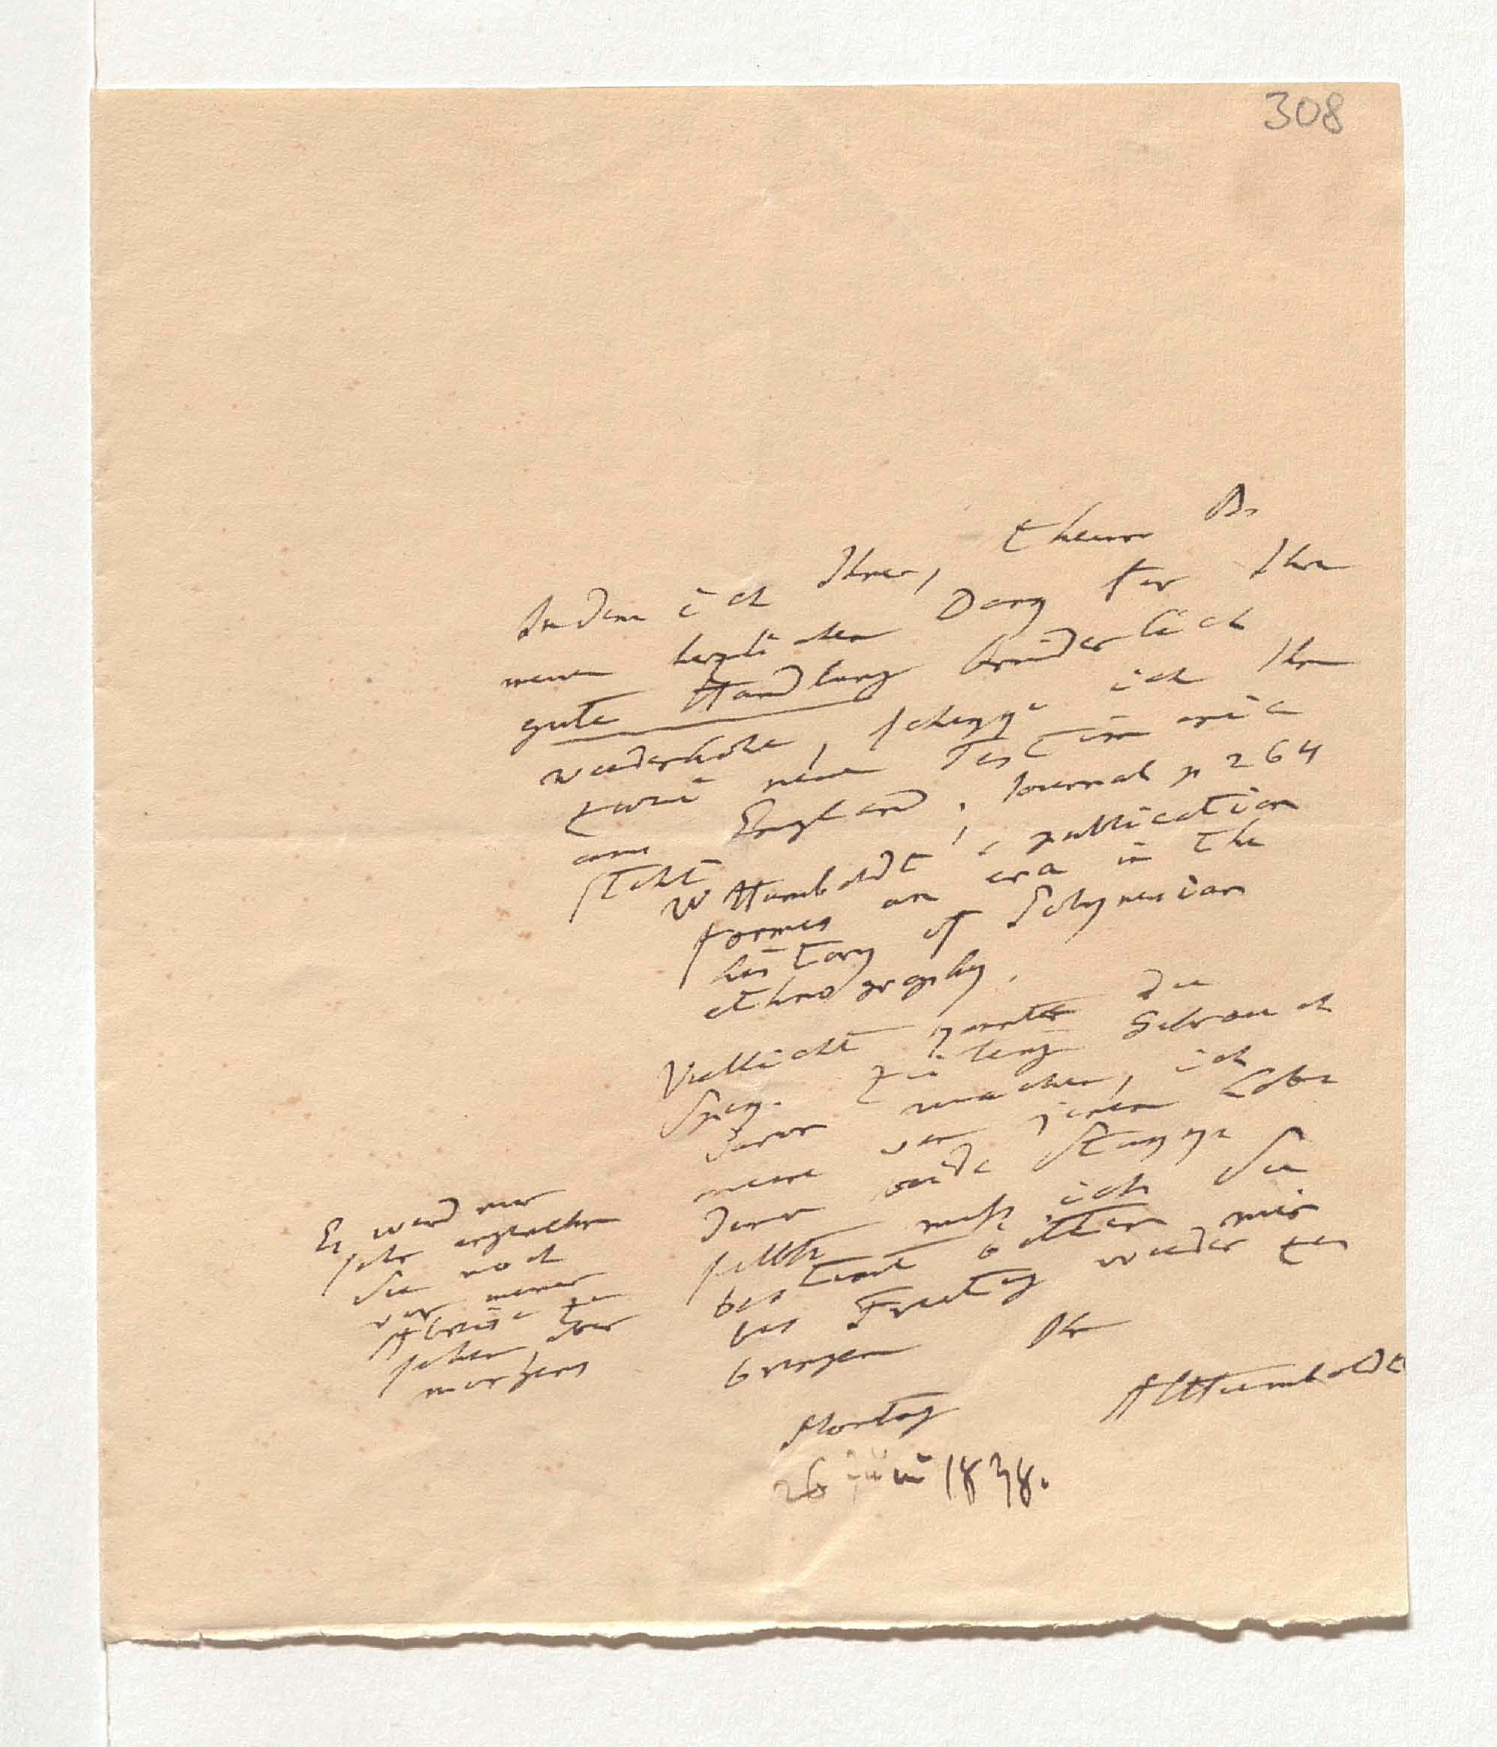 308
Indem ich Ihnen, theurer B.
meinen herzlichsten Dank für Ihre
gute Handlung brüderlich
wiederhole, schikke ich Ihnen
zwei neue Testimonia
aus England, Journal p 264
steht
W Humboldt's publication
formes an era in the
history of Polynesian
ethnography.
Vielleicht könnte die
Zeitung Gebrauch
davon machen, ich
meine von jenem Lobe
denn beide
selbst muß ich Sie
bitten mir
bis Freitag wieder zu
bringen Ihr
AlHumboldt
Montag
26 juni 1838.
Es wird mir
sehr
Sie noch
vor meiner
Abreise zu
sehen aber
morgens